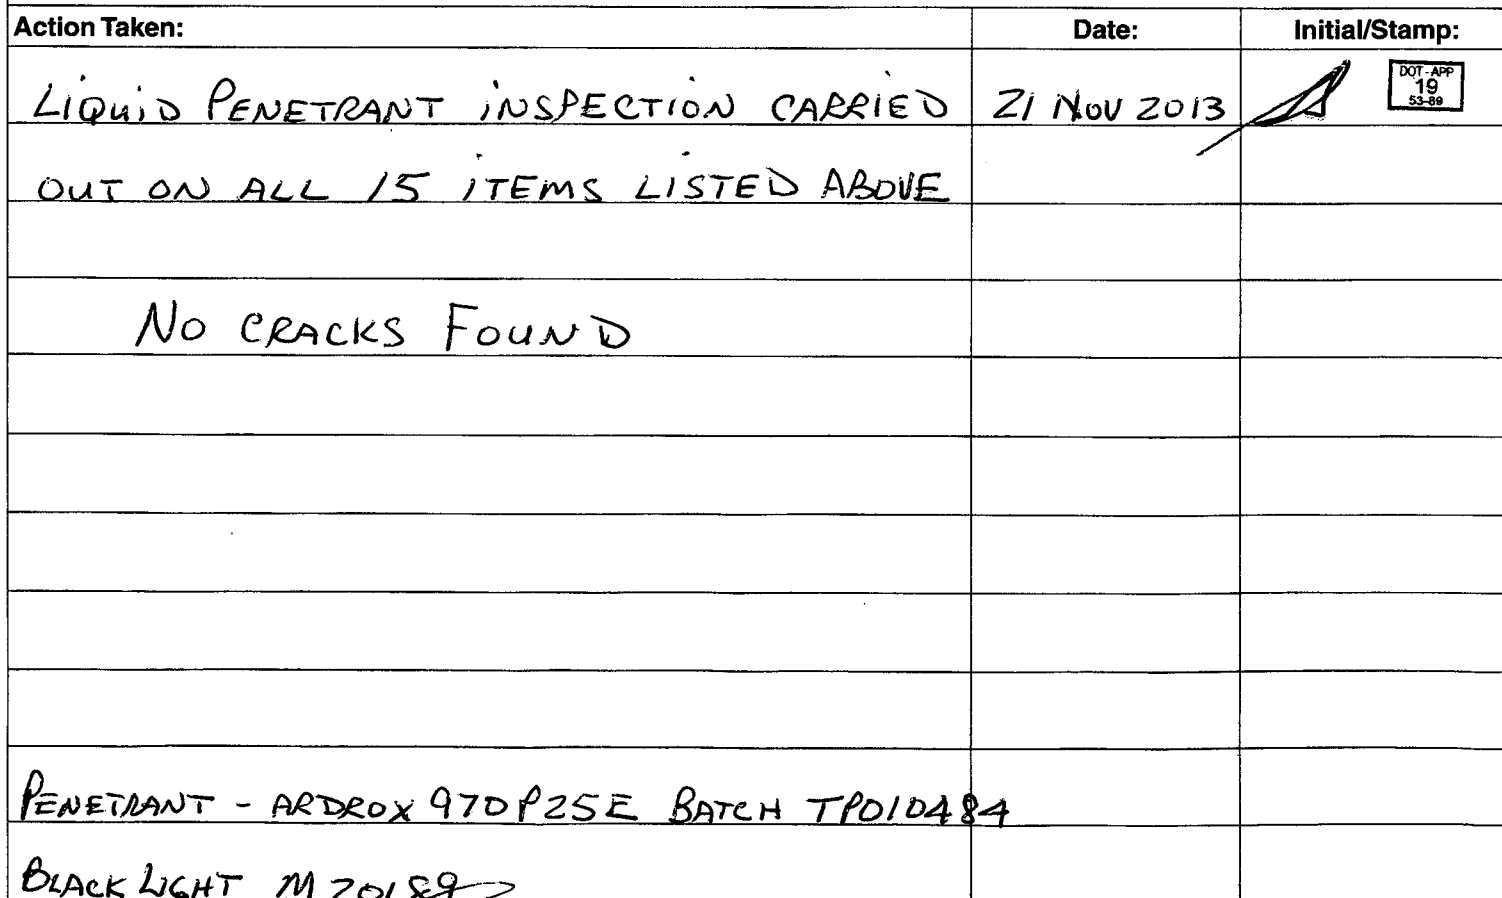 Action Taken: Date: Initial/Stamp:
LIQUID PENETRANT INSPECTION CARRIED 21 NOV 2013
DOT-APP
19
53-89
OUT ON ALL 15 ITEMS LISTED ABOVE
NO CRACKS FOUND
PENETRANT - ARDROX 970P25E BATCH TP010484
BLACK LIGHT M70189